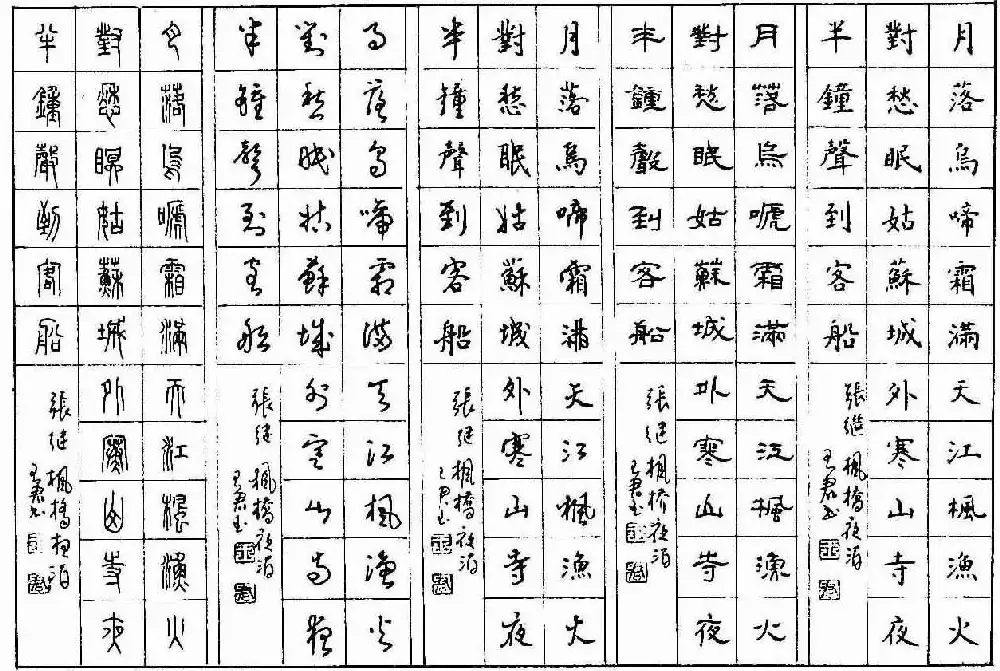 月落烏啼霜滿天江楓漁火
對愁眠姑蘇城外寒山寺夜
半鐘聲到客船
張继 楓橋夜泊
月落烏嗁霜滿天江楓漁火
對愁眠姑蘇城外寒山寺夜
半鐘聲到客船
張继 楓橋夜泊
月落烏啼霜滿天江楓漁火
對愁眠姑蘇城外寒山寺夜
半鐘聲到客船
張继 楓橋夜泊
月落烏啼霜滿天江楓漁火
對愁眠姑蘇城外寒山寺夜
半鐘聲到客船
張继 楓橋夜泊
月落烏嗁霜滿天江楓漁火
對愁眠姑蘇城外寒山寺夜
半鐘聲到客船
張继 楓橋夜泊